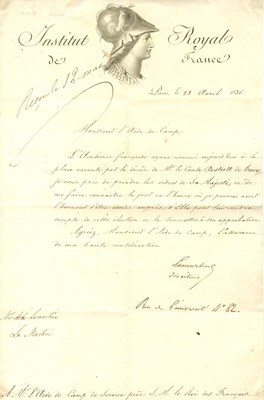 Institut Royal
de France
Reçu le 1 2 mai
Paris, le 23 avril 1836.
Monsieur l'Aide de Camp,
L'Académie française ayant nommé aujourd'hui à la
place vacante par le décès de Mr le Comte Destutt de Tracy,
je vous prie de prendre les ordres de Sa Majesté, et de
me faire connaître le jour et l'heure où je pourrai avoir
l'honneur d'être admis auprès d'Elle pour lui rendre
compte de cette élection et la soumettre à son approbation.
Agréez, Monsieur l'Aide de Camp, l'assurance
de ma haute considération
Directeur
Rue de l'Université No 82.
A Mr l'Aide de Camp de Service près S. M. le Roi des Français